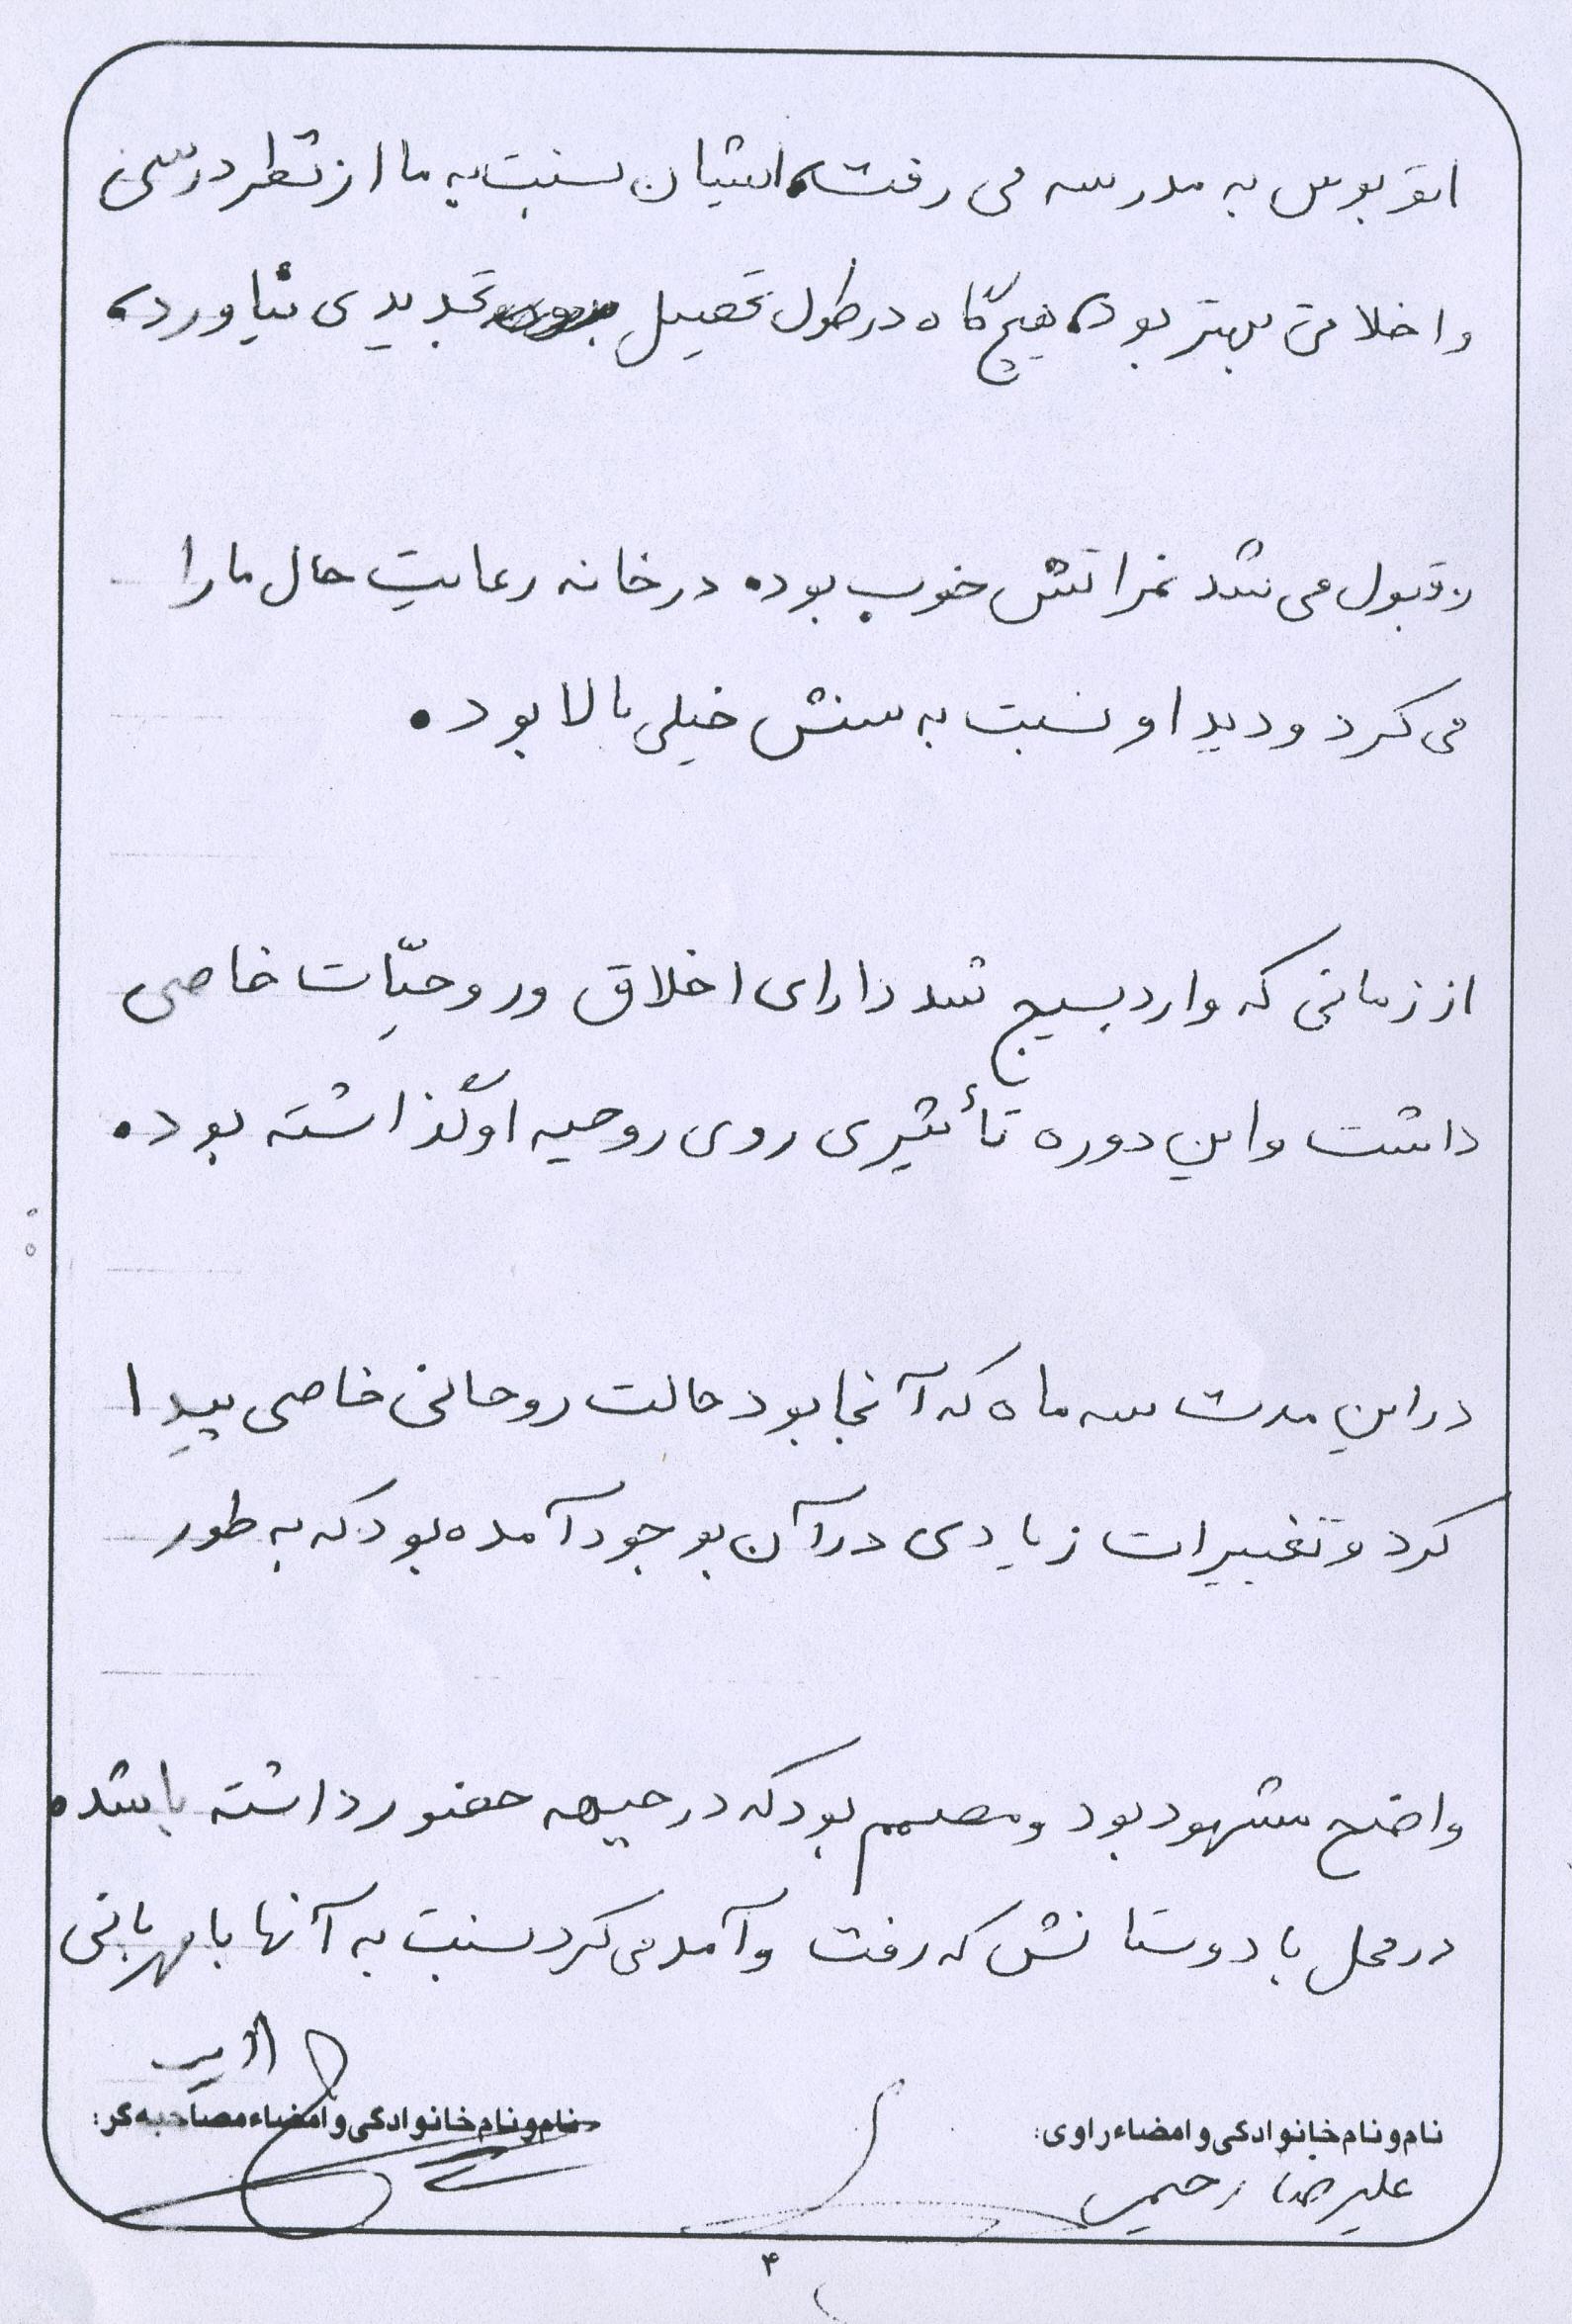 اتوبوس به مدرسه می رفت. ایشان نسبت به ما از نظر درسی
و اخلاقی بهتر بود. هیچ گاه در طول تحصیل تجدیدی نیاورد.
و قبول می شد نمراتش خوب بود. در خانه رعایت حال ما را
می کرد و دید او نسبت به سنش خیلی بالا بود.
از زمانی که وارد بسیج شد دارای اخلاق و روحیّات خاصی
داشت و این دوره تأثیری روی روحیه او گذاشته بود.
در این مدت سه ماه که آنجا بود حالت روحانی خاصی پیدا
کرد و تغییرات زیادی در آن بوجود آمده بود که به طور
واضح مشهود بود و مصمم بود که در جبهه حضور داشته باشد.
در محل با دوستانش که رفت و آمد می کرد نسبت به آنها با مهربانی
نام و نام خانوادگی و امضاء راوی:
علیرضا رحیمی
نام و نام خانوادگی و امضاء مصاحبه گر:
۴